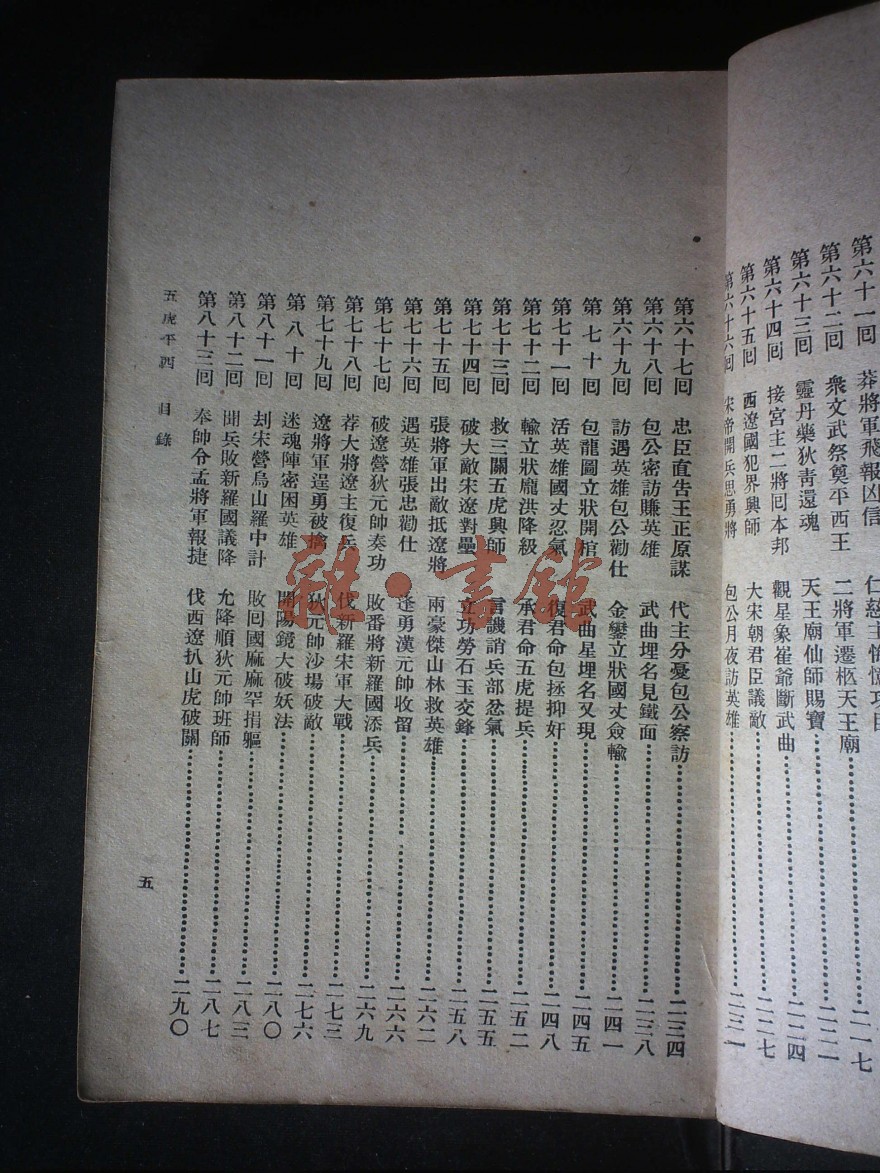 第六十一回 莽將軍飛報凶信 二一七
第六十二回 衆文武祭奠平西王 二將軍遷柩天王廟 二二一
第六十三回 靈丹藥狄靑還魂 天王廟仙師賜寶 二二四
第六十四回 接宮主二將回本邦 觀星象崔爺斷武曲 二二七
第六十五回 西遼國犯界興師 大宋朝君臣議敵
第六十六回 宋帝開兵思勇將 包公月夜訪英雄 二三一
第六十七回 忠臣直吿王正原謀 代主分憂包公察訪 二三四
第六十八回 包公密訪賺英雄 武曲埋名見鐵面 二三八
第六十九回 訪遇英雄包公勸仕 金鑾立狀國丈僉輸 二四一
第七十回 包龍圖立狀開棺 武曲星埋名又現 二四五
第七十一回 活英雄國丈忍氣 復君命包拯抑奸 二四八
第七十二回 輸立狀龐洪降級 承君命五虎提兵 二五二
第七十三回 救三關五虎興師 言譏誚兵部忿氣 二五五
第七十四回 破大敵宋遼對壘 立功勞石玉交鋒 二五八
第七十五回 張將軍出敵抵遼將 兩豪傑山林救英雄 二六二
第七十六回 遇英雄張忠勸仕 逢勇漢元帥收留 二六六
第七十七回 破遼營狄元帥奏功 敗番將新羅國添兵 二六九
第七十八回 荐大將遼主復兵 伐新羅宋軍大戰 二七三
第七十九回 遼將軍逞勇被擒 狄元帥沙場破敵 二七六
第八十回 迷魂陣密困英雄 開陽鏡大破妖法 二八〇
第八十一回 刦宋營烏山羅中計 敗回國麻麻罕捐軀 二八三
第八十二回 聞兵敗新羅國議降 允降順狄元帥班師 二八七
第八十三回 奉帥令孟將軍報捷 伐西遼扒山虎破關 二九〇
五虎平西 目錄
五
雜·書館